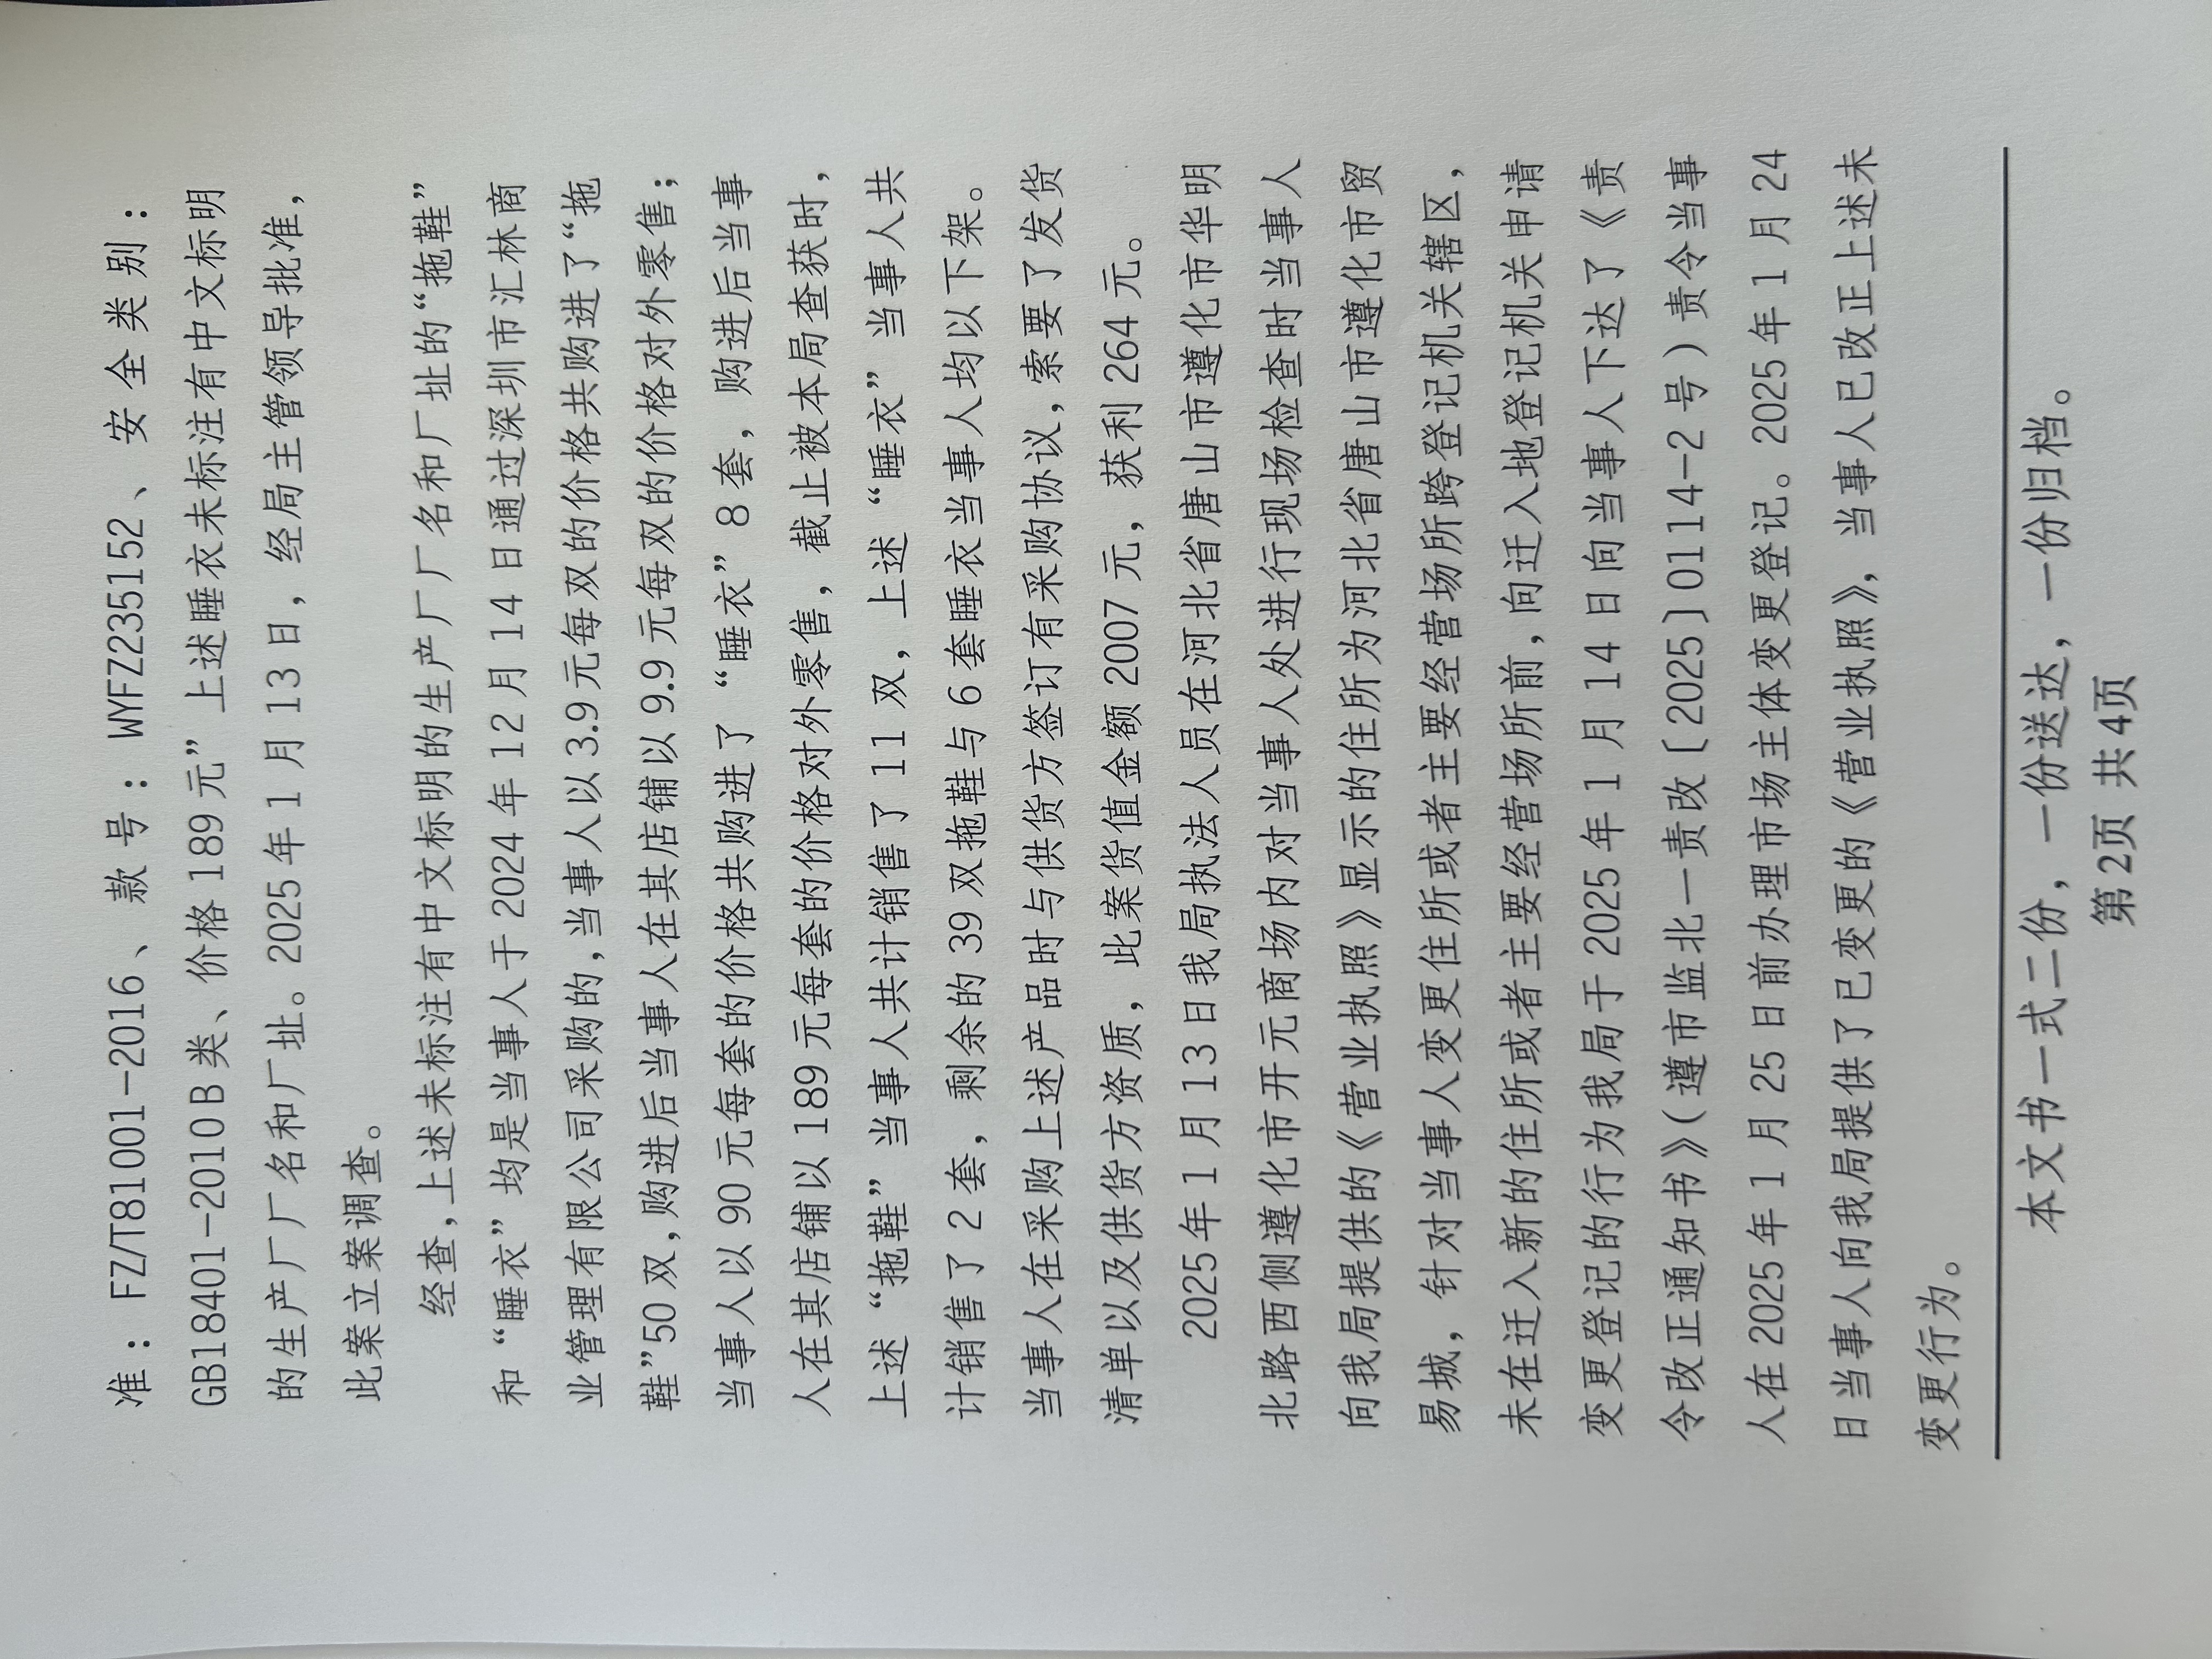 准：FZ/T81001-2016、款号：WYFZ235152、安全类别：
GB18401-2010B类、价格189元”上述睡衣未标注有中文标明
的生产厂厂名和厂址。2025年1月13日，经局主管领导批准，
此案立案调查。
经查，上述未标注有中文标明的生产厂厂名和厂址的“拖鞋”
和“睡衣”均是当事人于2024年12月14日通过深圳市汇林商
业管理有限公司采购的，当事人以3.9元每双的价格共购进了“拖
鞋”50双，购进后当事人在其店铺以9.9元每双的价格对外零售；
当事人以90元每套的价格共购进了“睡衣”8套，购进后当事
人在其店铺以189元每套的价格对外零售，截止被本局查获时，
上述“拖鞋”当事人共计销售了11双，上述“睡衣”当事人共
计销售了2套，剩余的39双拖鞋与6套睡衣当事人均以下架。
当事人在采购上述产品时与供货方签订有采购协议，索要了发货
清单以及供货方资质，此案货值金额2007元，获利264元。
2025年1月13日我局执法人员在河北省唐山市遵化市华明
北路西侧遵化市开元商场内对当事人处进行现场检查时当事人
向我局提供的《营业执照》显示的住所为河北省唐山市遵化市贸
易城，针对当事人变更住所或者主要经营场所跨登记机关辖区，
未在迁入新的住所或者主要经营场所前，向迁入地登记机关申请
变更登记的行为我局于2025年1月14日向当事人下达了《责
令改正通知书》（遵市监北一责改〔2025〕0114-2号）责令当事
人在2025年1月25日前办理市场主体变更登记。2025年1月24
日当事人向我局提供了已变更的《营业执照》，当事人已改正上述未
变更行为。
本文书一式二份，一份送达，一份归档。
第2页 共4页